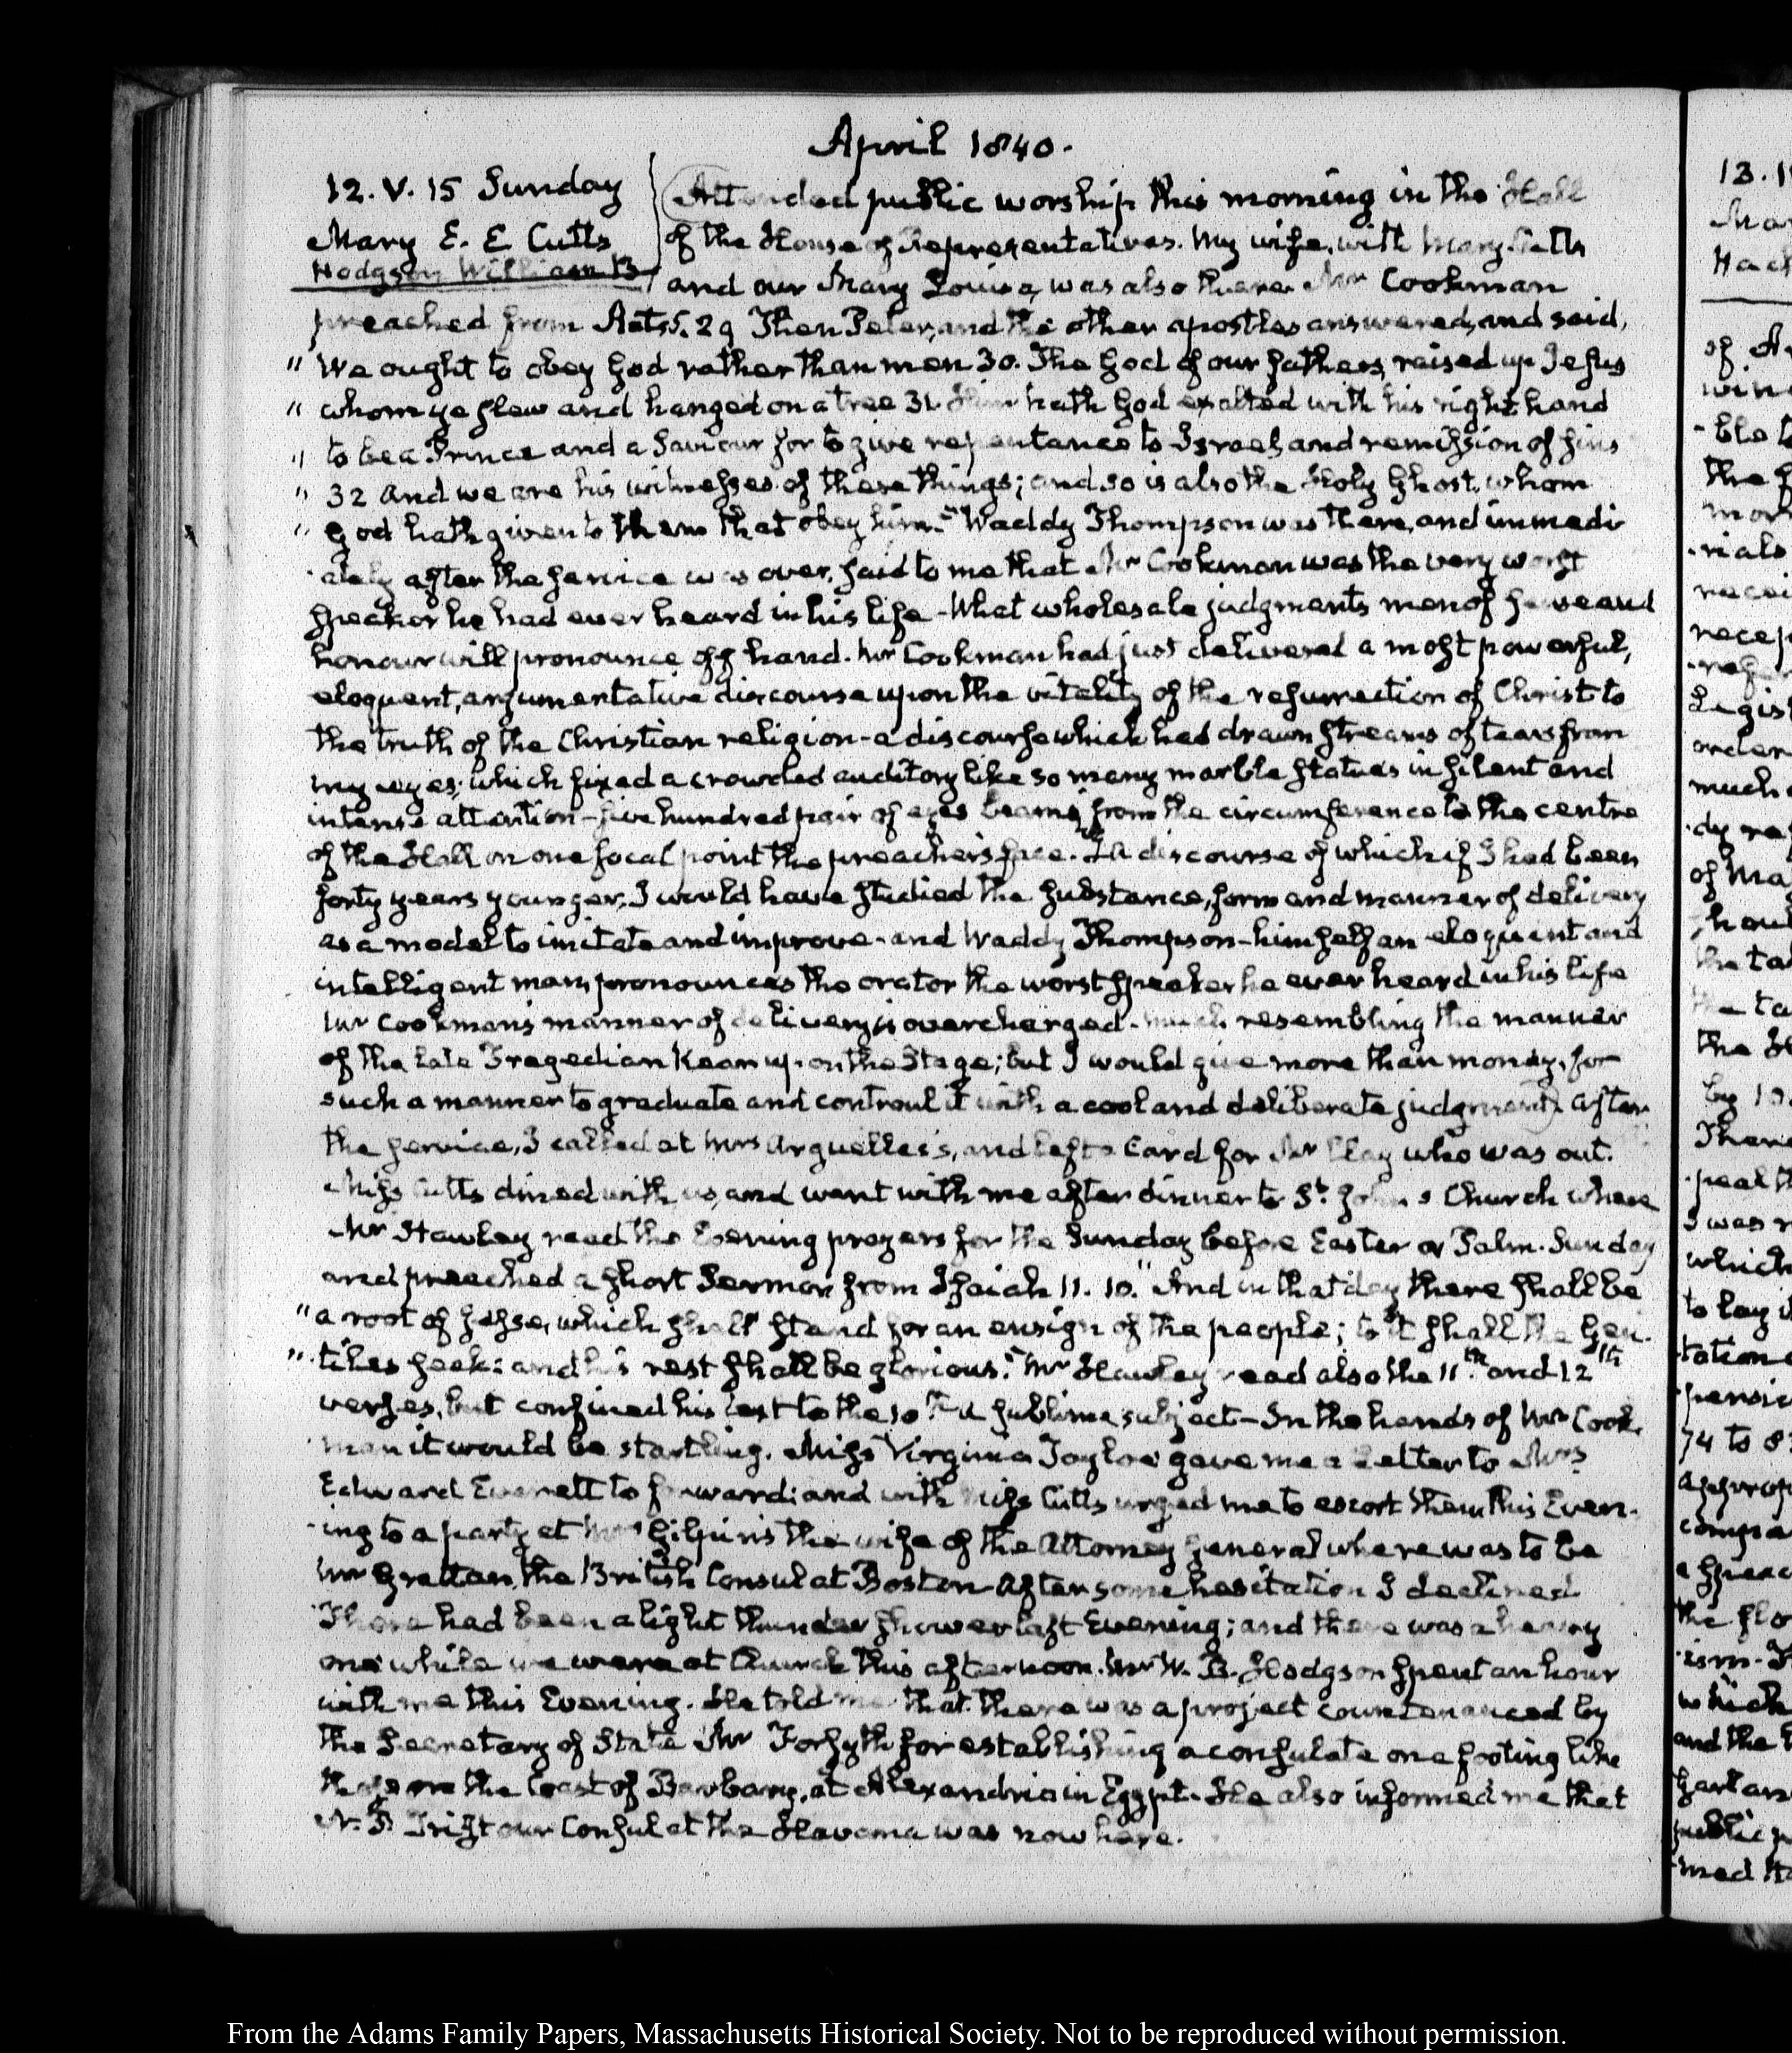 April 1840.
12. V. 15 Sunday
Mary E. E Cutts
Hodgson William B
Attended public worship this morning in the Hall
of the House of Representatives. My wife, with Mary Cutts
and our Mary Louisa, was also there. Mr Cookman
preached from Acts 5. 29 Then Peter, and the other apostles answered, and said,
" We ought to obey God rather than men 30. The God of our fathers, raised up Jesus
" whom ye slew and hanged on a tree 31. Him hath God exalted with his right hand
" to be a Prince and a Saviour for to give repentance to Israel, and remission of sins
" 32 And we are his witnesses of these things; and so is also the Holy Ghost, whom
" God hath given to them that obey him." Waddy Thompson was there, and immedi
-ately after the service was over, said to me that Mr Cookman was the very worst
speaker he had ever heard in his life - What wholesale judgments men of sense and
honour will pronounce off hand. Mr Cookman had just delivered a most powerful,
eloquent, argumentative discourse upon the vitality of the resurrection of Christ to
the truth of the Christian religion - a discourse which had drawn streams of tears from
my eyes; which fixed a crowded auditory like so many marble statues in silent and
intense attention - five hundred pair of eyes beaming from the circumference to the centre
of the Hall on one focal point the preacher's face. A discourse of which if I had been
forty years younger, I would have studied the substance, form and manner of delivery
as a model to imitate and improve - and Waddy Thompson - himself an eloquent and
intelligent man, pronounces the orator the worst speaker he ever heard in his life
Mr Cookman's manner of delivery is overcharged. much resembling the manner
of the late Tragedian Kean upon the Stage; but I would give more than money, for
such a manner to graduate and controul it with a cool and deliberate judgment. After
the service, I called at Mrs Arguelles's, and left a Card for Mr Clay who was out.
Miss Cutts dined with us, and went with me after dinner to St. John's Church where
Mr Hawley read the Evening prayers for the Sunday before Easter or Palm-Sunday
and preached a short Sermon from Isaiah 11. 10. " And in that day there shall be
" a root of Jesse, which shall stand for an ensign of the people; to it shall the Gen-
" tiles seek: and his rest shall be glorious." Mr Hawley read also the 11th. and 12th
verses, but confined his text to the 10th. a sublime subject - In the hands of Mr Cook-
man it would be startling. Miss Virginia Tayloe gave me a Letter to Mrs
Edward Everett to forward: and with Miss Cutts urged me to escort them this Even-
-ing to a party at Mrs Gilpin's the wife of the Attorney General where was to be
Mr Grattan, the British Consul at Boston. After some hesitation I declined.
There had been a light thunder shower last Evening; and there was a heavy
one while we were at Church this afternoon. Mr W. B. Hodgson spent an hour
with me this Evening. He told me that there was a project countenanced by
the Secretary of State Mr Forsyth for establishing a consulate on a footing like
those on the Coast of Barbary, at Alexandria in Egypt. He also informed me that
N. P. Trist our Consul at the Havanna was now here.
From the Adams Family Papers, Massachusetts Historical Society. Not to be reproduced without permission.